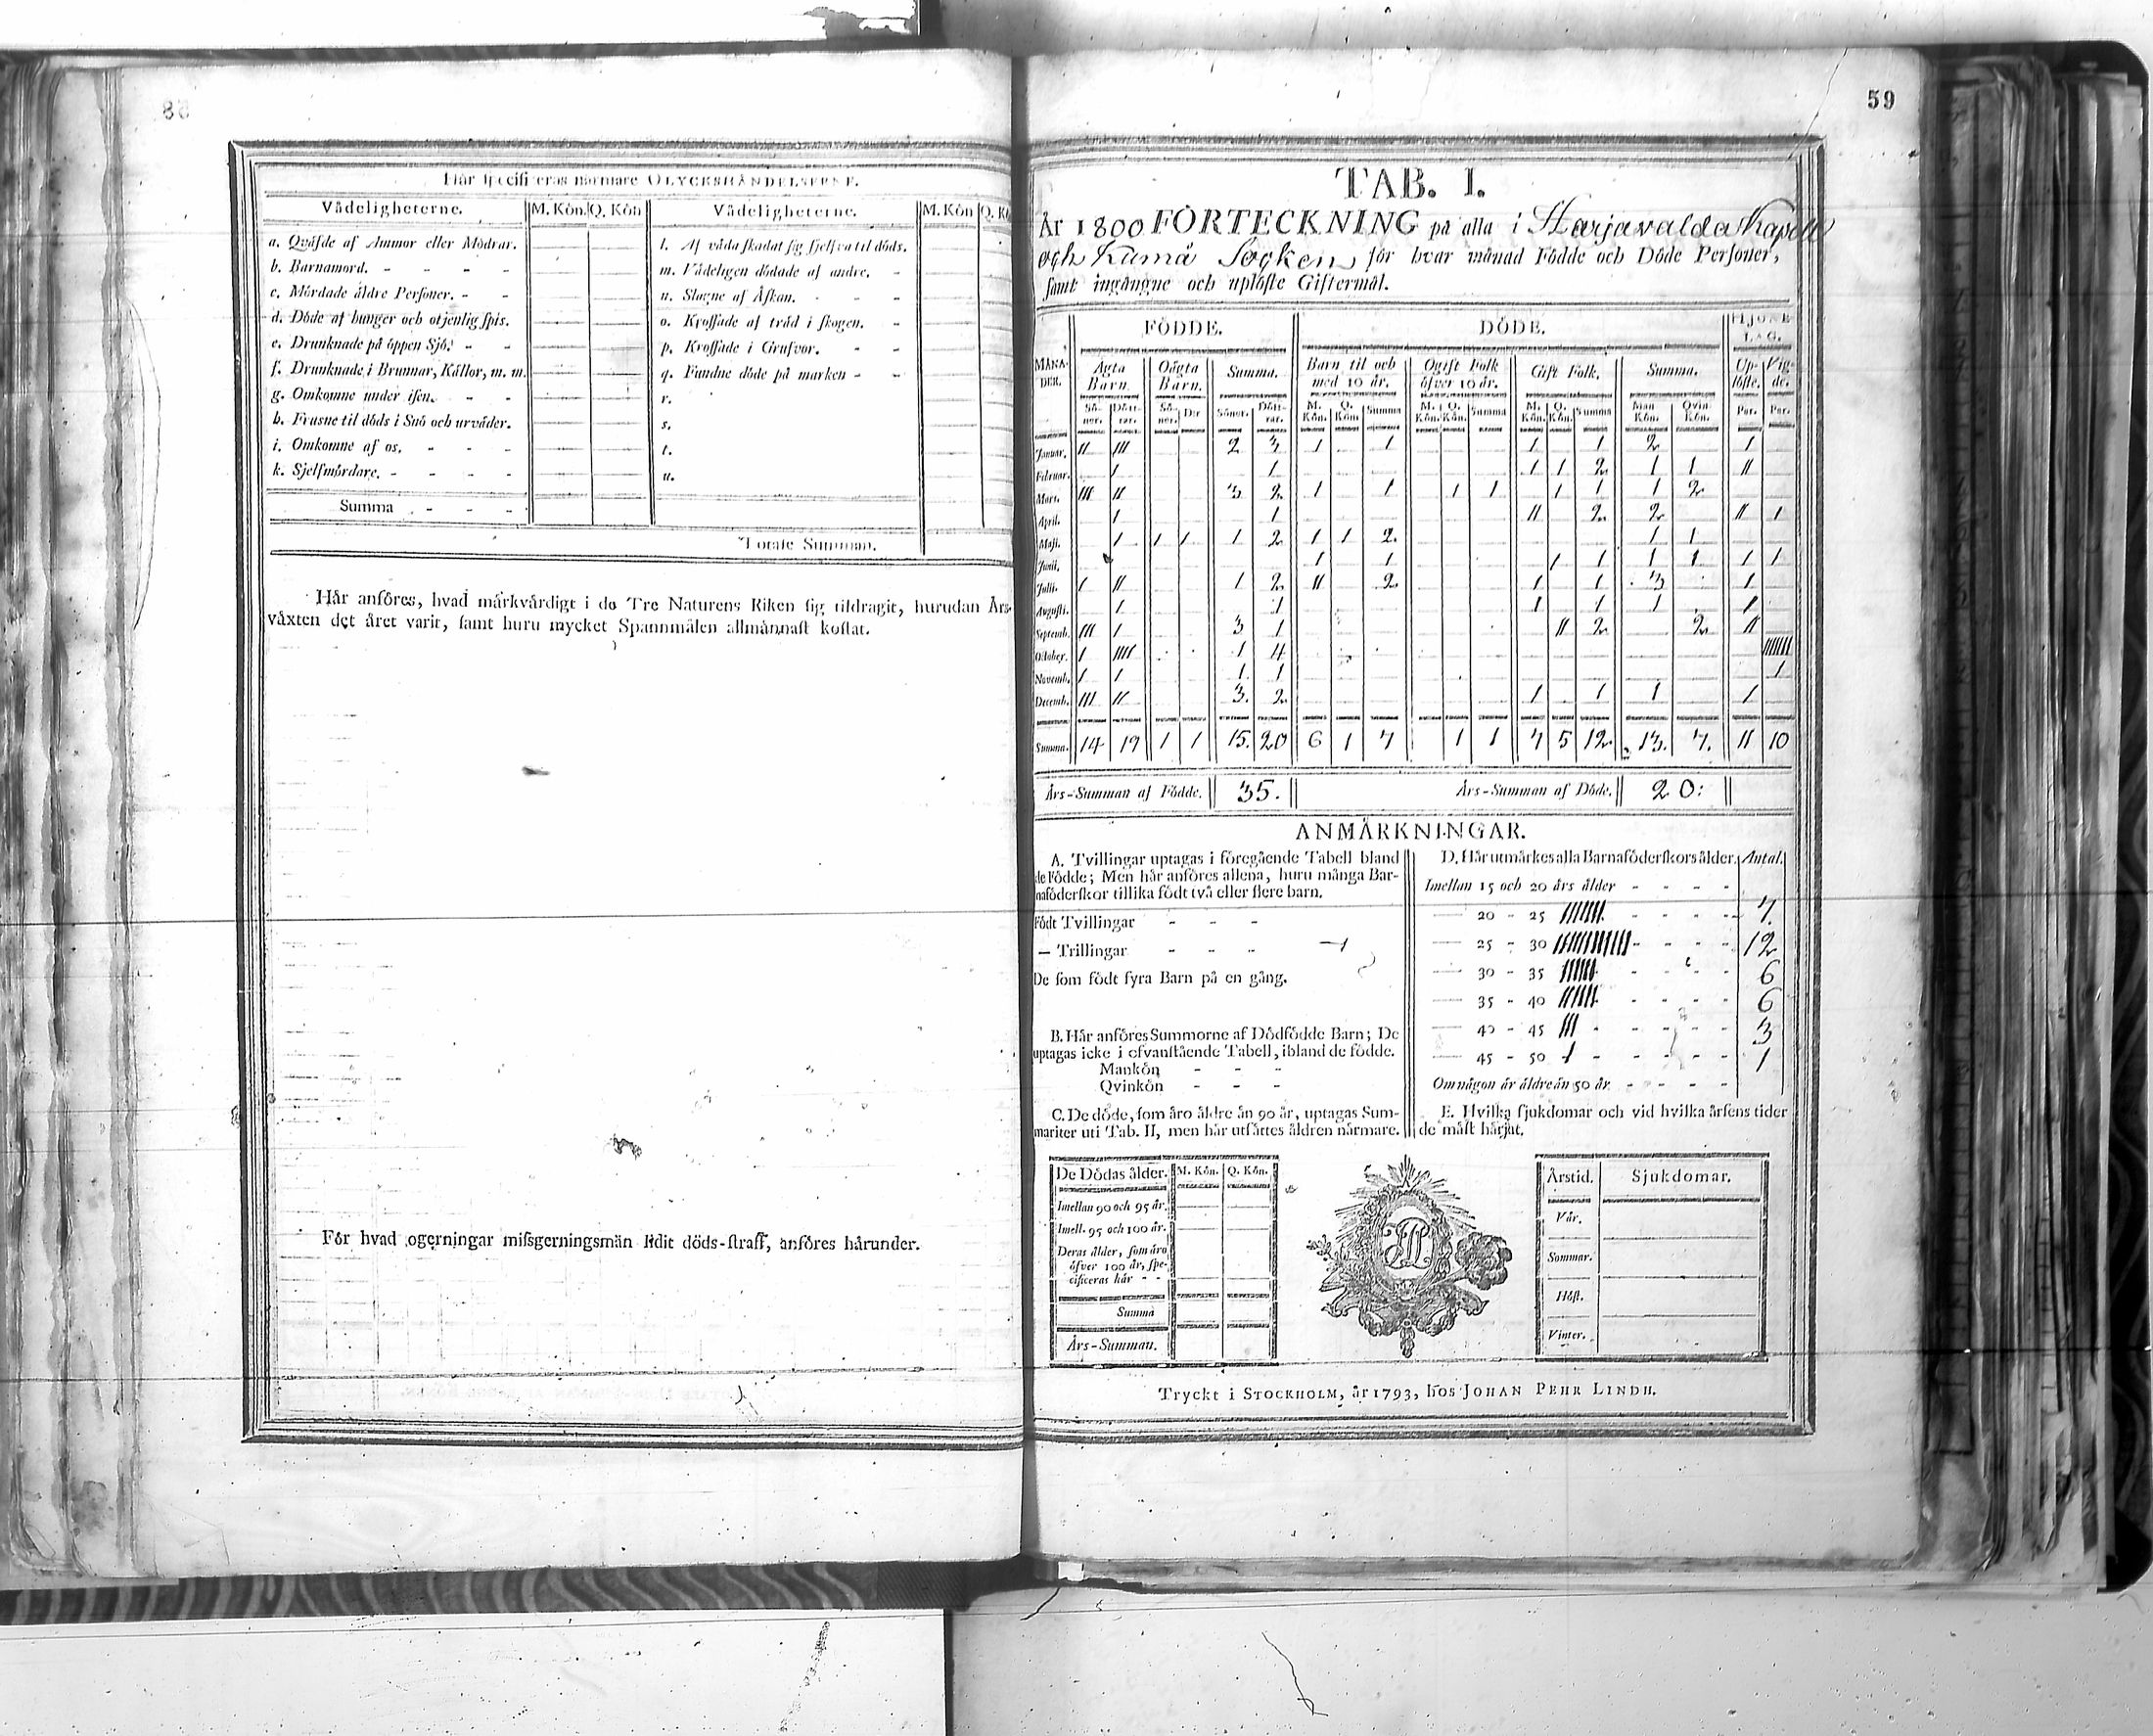 58
Hår specificeras nårmare OLYCKSHÅNDELSERNE.
Vådeligheterne. M. Kön. Q. Kön Vådeligheterne. M. Kön
a. Qväfde af Ammor eller Mödrar. l. Af våda skadat sig sjelfva til döds.
b. Barnamord. - - - - m. Vådeligen dödade af andre. -
c. Mördade äldre Personer. - - n. Slagne af Åskan. - - -
d. Döde af hunger och otjenlig spis. o. Krossade af träd i skogen. -
e. Drunknade på öppen Sjö. - - p. Krossade i Grufvor. - -
f. Drunknade i Brunnar, Kållor, m. m. q. Fundne döde på marken - -
g. Omkomne under isen. - - r.
h. Frusne til döds i Snö och urväder. s.
i. Omkomne af os. - - - t.
k. Sjelfmördare. - - - - u.
Summa - - -
Totale Summan.
Hår anföres, hvad märkvärdigt i de Tre Naturens Riken sig tildragit, hurudan Års-
växten det året varit, samt huru mycket Spannmålen allmännast kostat.
För hvad ogerningar missgerningsmän lidit döds-straff, anföres härunder.
59
TAB. I.
År 1800 FÖRTECKNING på alla i Harjavalda Kapell
och Kumå Socken för hvar månad Födde och Döde Personer,
samt ingångne och uplöste Giftermål.
FÖDDE. DÖDE. HJONE-
LAG.
MÅNA-
DER. Ägta
Barn. Oägta
Barn. Summa. Barn til och
med 10 år. Ogift Folk
öfver 10 år. Gift Folk. Summa. Up-
löste. Vig-
de.
Sö-
ner. Dött-
rar. Sö-
ner. D:r Söner. Dött-
rar. M.
Kön. Q.
Kön Summa M.
Kön. Q.
Kön. Summa M.
Kön. Q.
Kön. Summa Man
Kön. Qvin
Kön. Par. Par.
Januar. II III 2 3 1 1 1 1 2 1
Februar. 1 1 1 1 2 1 1 II
Mars. III II 3 2 1 1 1 1 1 1 1 2
April. 1 1 II 2 2 II 1
Maji. 1 1 1 1 2 1 1 2 1 1
Junii. 1 1 1 1 1 1 1 1
Julii. 1 II 1 2 II 2 1 1 3 1
Augusti. 1 1 1 1 1 1
Septemb. III 1 3 1 II 2 2 II
October. 1 IIII 1 4 IIIIIII
Novemb. 1 1 1 1 1
Decemb. III II 3. 2 1 1 1 1
Summa. 14 19 1 1 15. 20 6 1 7 1 1 7 5 12 13. 7. 11 10
Års-Summan af Födde. 35. Års-Summan af Döde. 20:
ANMÄRKNINGAR.
A. Tvillingar uptagas i föregående Tabell bland
de Födde; Men här anföres allena, huru många Bar-
naföderskor tillika födt två eller flere barn.
Födt Tvillingar - - -
— Trillingar - - - 1
De som födt fyra Barn på en gång.
B. Här anföres Summorne af Dödfödde Barn; De
uptagas icke i ofvanstående Tabell, ibland de födde.
Mankön - - -
Qvinkön - - -
C. De döde, som äro äldre än 90 år, uptagas Sum-
mariter uti Tab. II, men här utsättes åldren närmare.
D. Här utmärkes alla Barnaföderskors ålder. Antal.
Imellan 15 och 20 års ålder - - - -
20 - 25 IIIIIII - - - - 7.
25 - 30 IIIIIIIIIIII - - - - 12
30 - 35 IIIIII - - - - 6
35 - 40 IIIIII - - - - 6
40 - 45 III - - - - - 3
45 - 50 1 - - - - - 1
Om någon är äldre än 50 år. - - - -
E. Hvilka sjukdomar och vid hvilka årsens tider
de mäst härjat.
De Dödas ålder. M. Kön. Q. Kön.
Imellan 90 och 95 år.
Imell. 95 och 100 år.
Deras ålder, som äro
öfver 100 år, spe-
cificeras här - -
Summa
Års-Summan.
Årstid. Sjukdomar.
Vår.
Sommar.
Höst.
Vinter.
Tryckt i STOCKHOLM, år 1793, hos JOHAN PEHR LINDH.